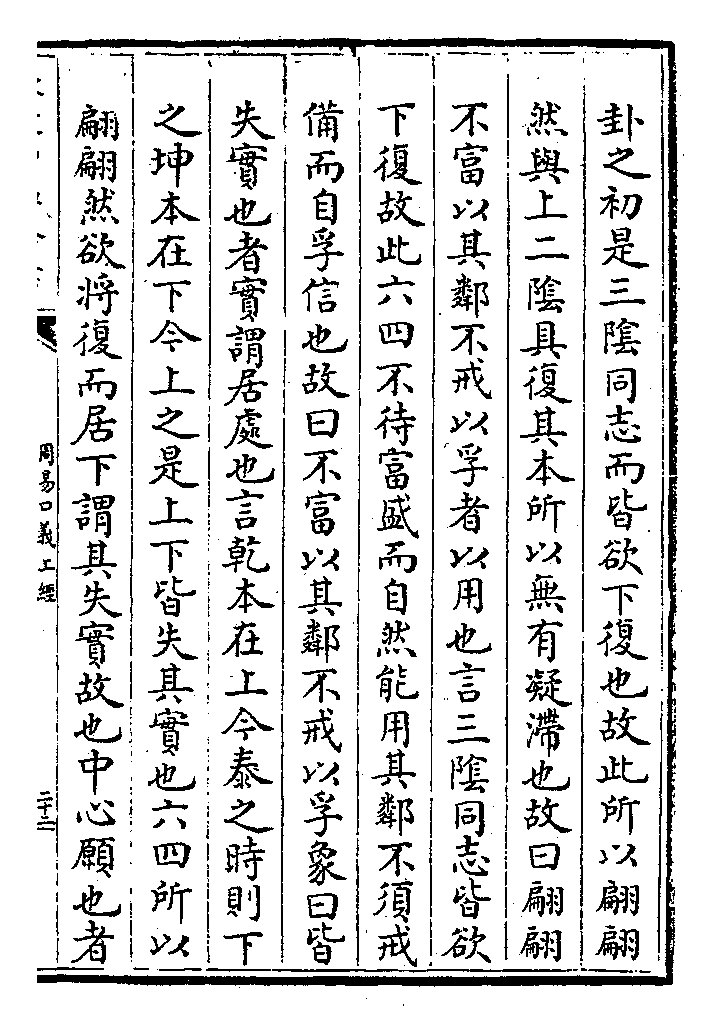 卦之初是三隂同志而皆欲下復也故此所以翩翩
然與上二隂具復其本所以無有凝滯也故曰翩翩
不富以其鄰不戒以孚者以用也言三隂同志皆欲
下復故此六四不待富盛而自然能用其鄰不須戒
備而自孚信也故曰不富以其鄰不戒以孚象曰皆
失實也者實謂居處也言乾本在上今泰之時則下
之坤本在下今上之是上下皆失其實也六四所以
翩翩然欲將復而居下謂其失實故也中心願也者
周易口義上經
二十三